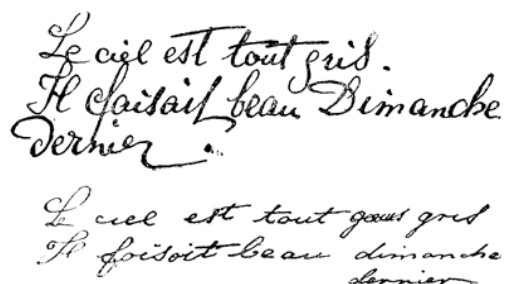 Le ciel est tout gris.
Il faisait beau Dimanche
dernier.
Le ciel est tout gris
Il faisoit beau dimanche
dernier